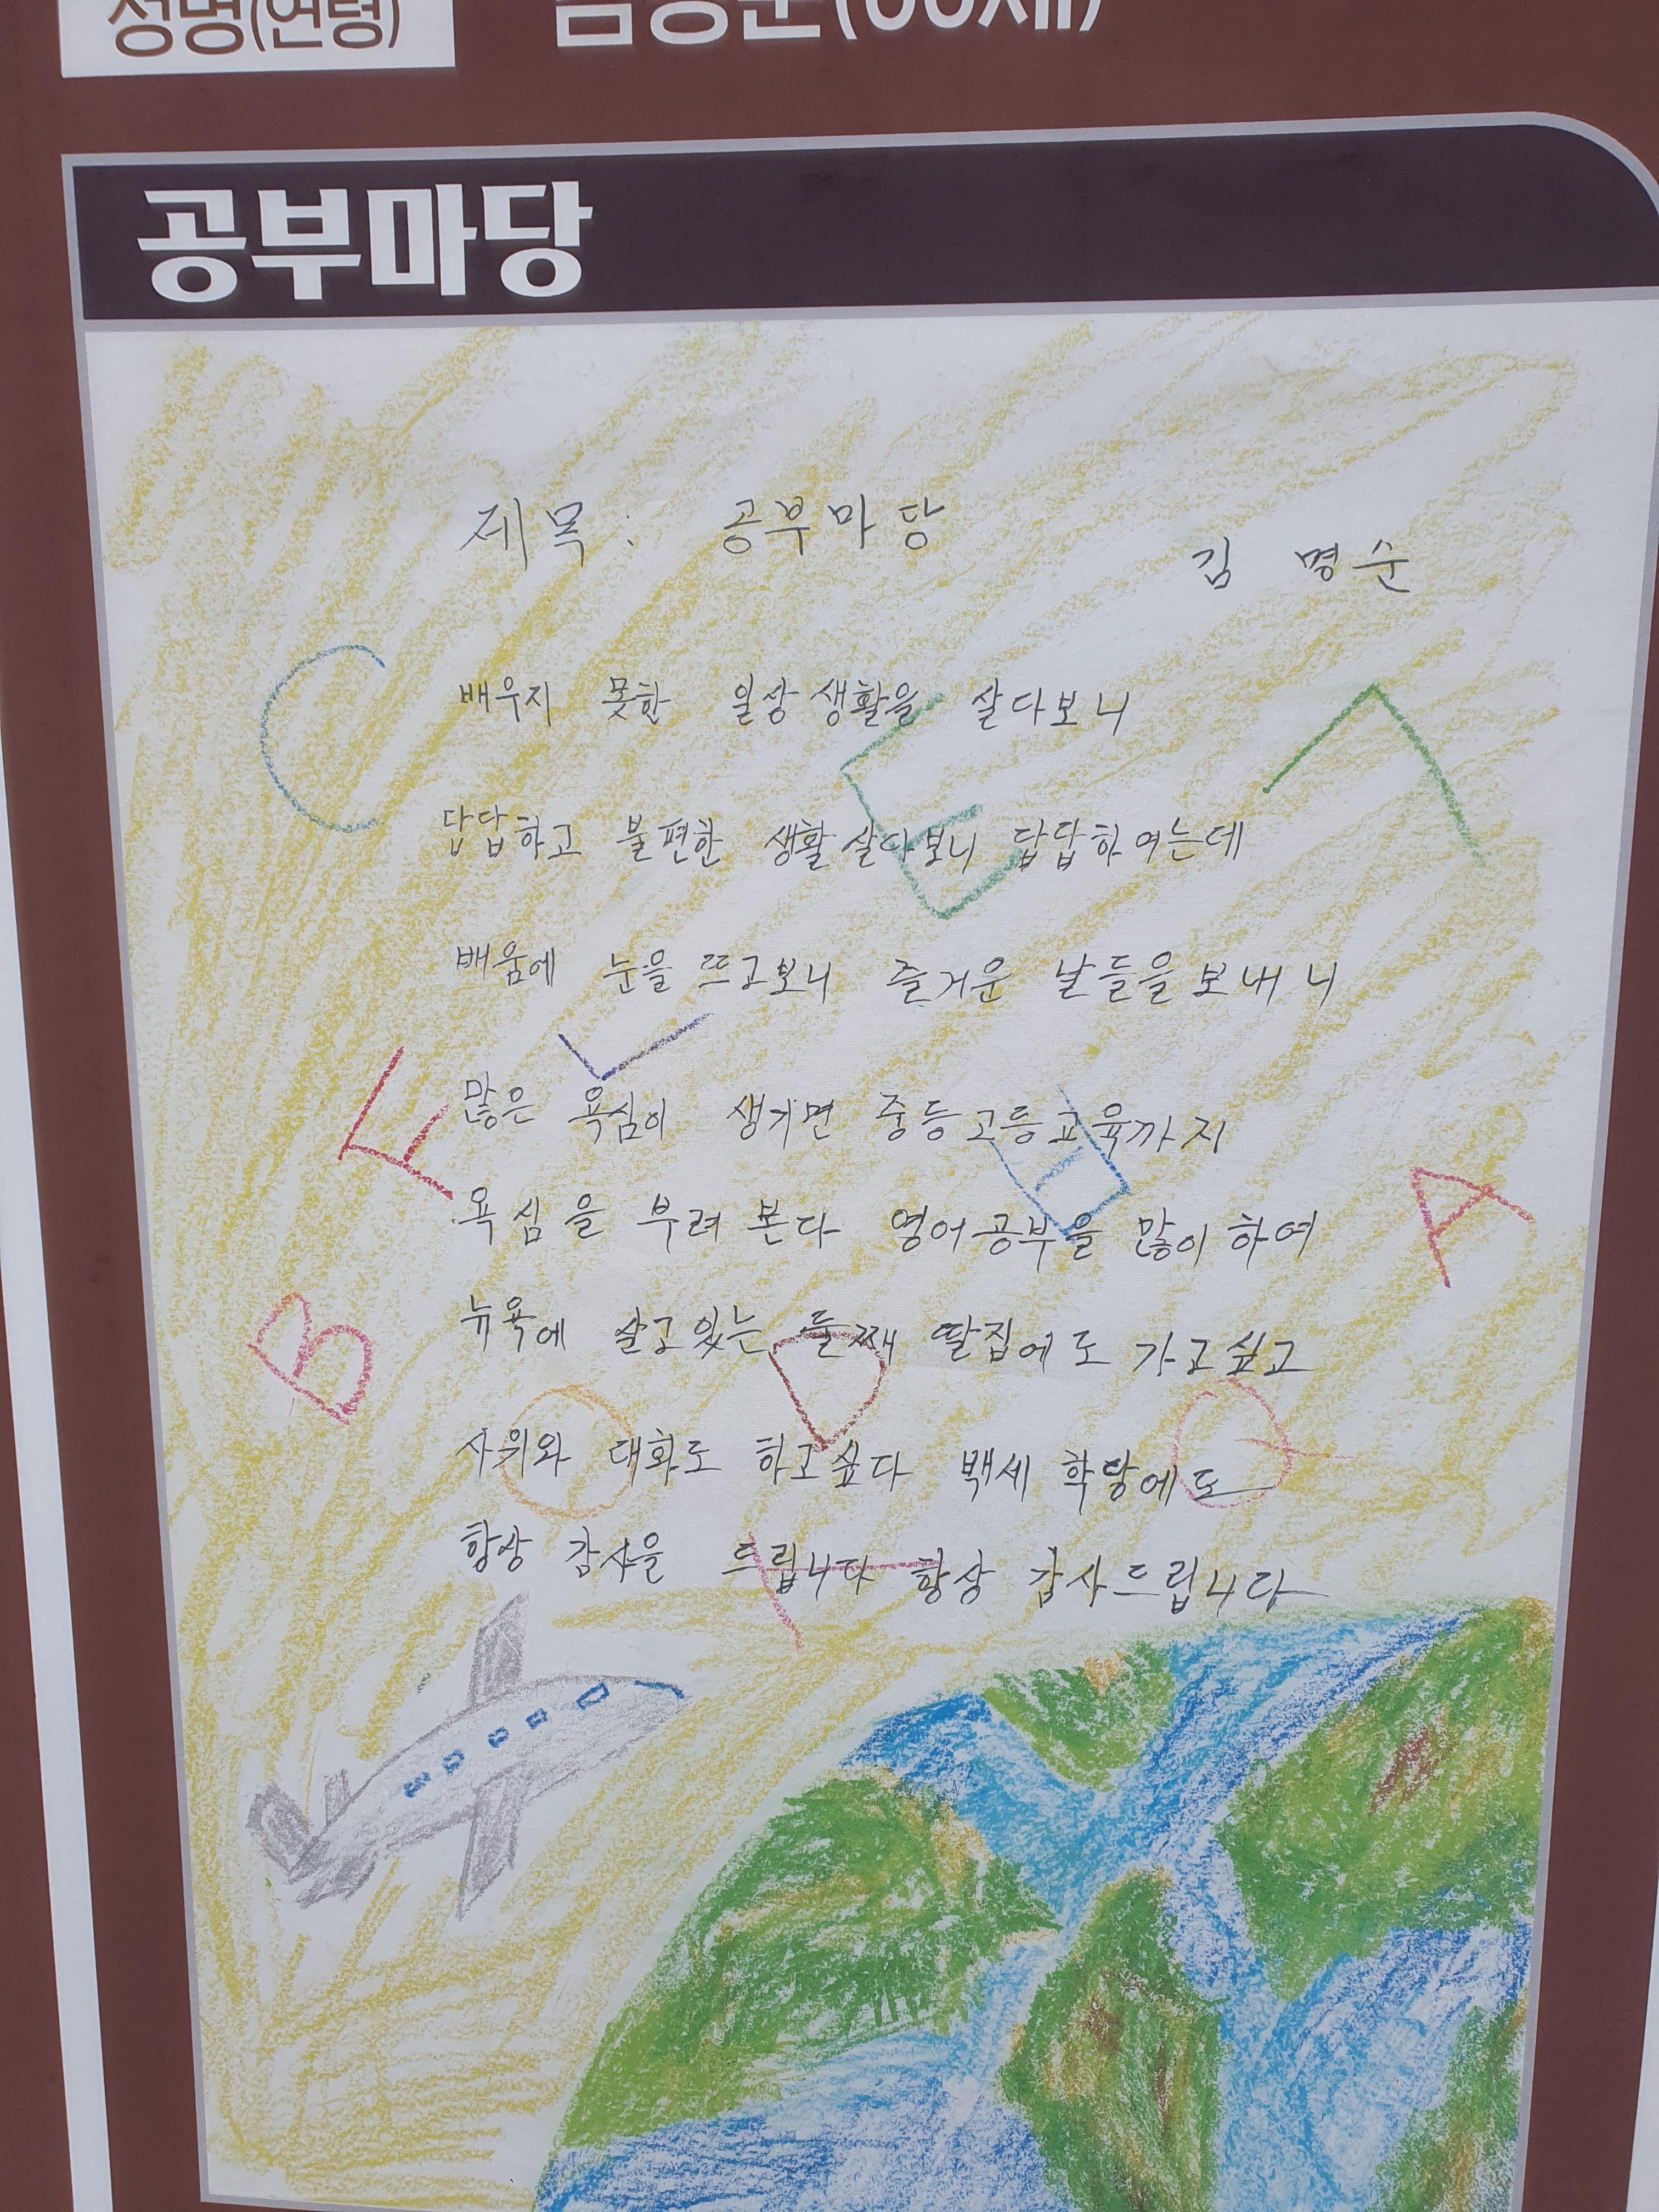 성명(연령)
공부마당
제목: 공부마당
김 명순
배우지 못한 일상 생활을 살다보니
답답하고 불편한 생활 살다보니 답답하여는데
배움에 눈을 뜨고보니 즐거운 날들을 보내니
많은 욕심이 생기면 중등고등교육까지
욕심을 부려 본다 영어공부을 많이하여
뉴욕에 살고있는 둘째 딸집에도 가고싶고
사위와 대화도 하고싶다 백세 학당에도
항상 감사을 드립니다 항상 감사드립니다